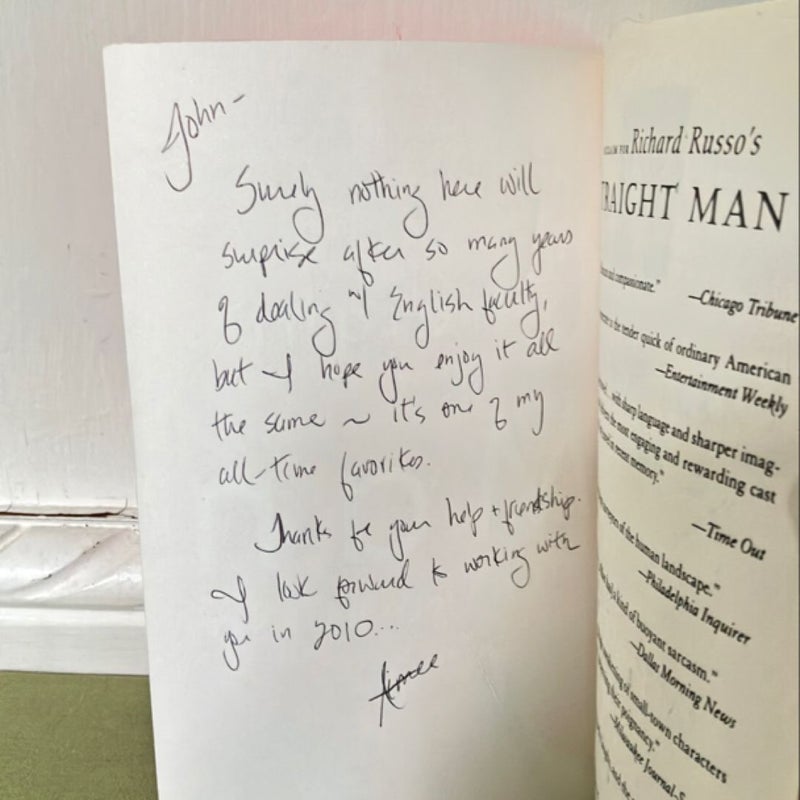 John-
Surely nothing here will
surprise after so many years
of dealing w/ English faculty,
but I hope you enjoy it all
the same ~ it's one of my
all-time favorites.
Thanks for your help + friendship.
I look forward to working with
you in 2010...
Aimee
FOR Richard Russo's
RAIGHT MAN
and compassionate."
—Chicago Tribune
is the tender quick of ordinary American
—Entertainment Weekly
with sharp language and sharper imag-
the most engaging and rewarding cast
in recent memory."
—Time Out
of the human landscape."
—Philadelphia Inquirer
kind of buoyant sarcasm."
—Dallas Morning News
of small-town characters
pregnancy."
—Milwaukee Journal-S